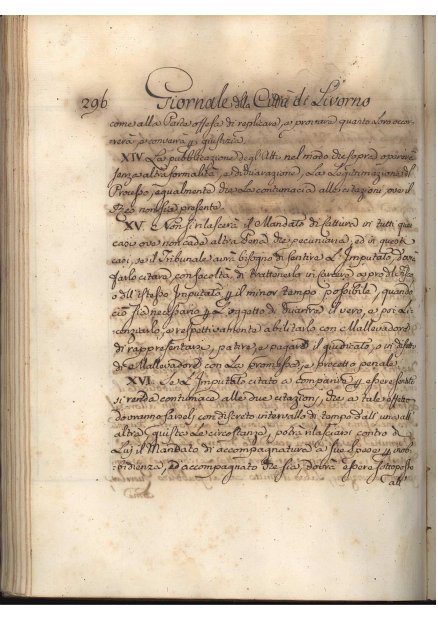 296 Giornale della Città di Livorno
come alla Parte offesa di replicare, e provare quanto loro occor-
rerà, e converrà per giustizia.
XIV. La pubblicazione degli Atti nel modo di sopra opererà
senza altra formalità, o dichiarazione, la Legittimazione del
Processo, egualmente che la contumacia alle citazioni, ove il
Reo non sia presente.
XV. Non si rilascerà il Mandato di cattura in tutti quei
casi ove non cada altra Pena che pecuniaria, ed in questi
casi, se il Tribunale avrà bisogno di sentire l'Imputato, dovrà
farlo citare con facoltà di trattenerlo in
dell'istesso Imputato per il minor tempo possibile, quando
ciò sia necessario per l'oggetto di scuoprire il vero, e poi Li-
cenziarlo, e respettivamente abilitarlo con Mallevadore
di rappresentare, patire, e pagare il giudicato, o in difetto
di Mallevadore con la promessa, e precetto penale.
XVI. Se l'Imputato citato a comparire per essere sentito
si renda contumace alle due citazioni, che a tale effetto
dovranno farseli, con discreto intervallo di tempo dall'una all'
altra, giusta le circostanze, potrà rilasciarsi contro di
Lui il Mandato di accompagnatura a sue spese per inob-
bidienza, ed accompagnato che sia, dovrà essere sottoposto
all'